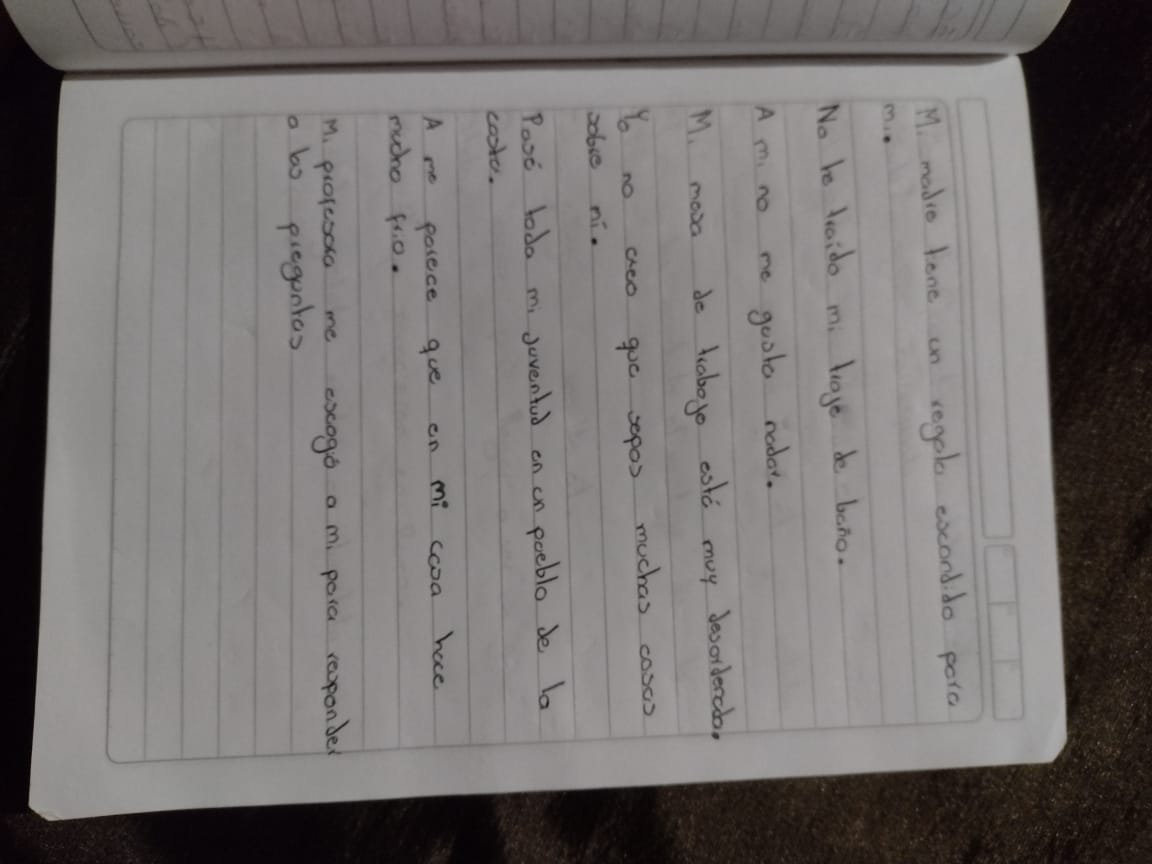 Mi madre tiene un regalo escondido para
mi.
No he traido mi traje de baño.
A mi no me gusta nadar.
Mi mesa de trabajo está muy desordenada.
Yo no creo que sepas muchas cosas
sobre mí.
Pasé toda mi juventud en un pueblo de la
costa.
A me parece que en mi casa hace
mucho frio.
Mi profesora me escogó a mi para responder
a las preguntas